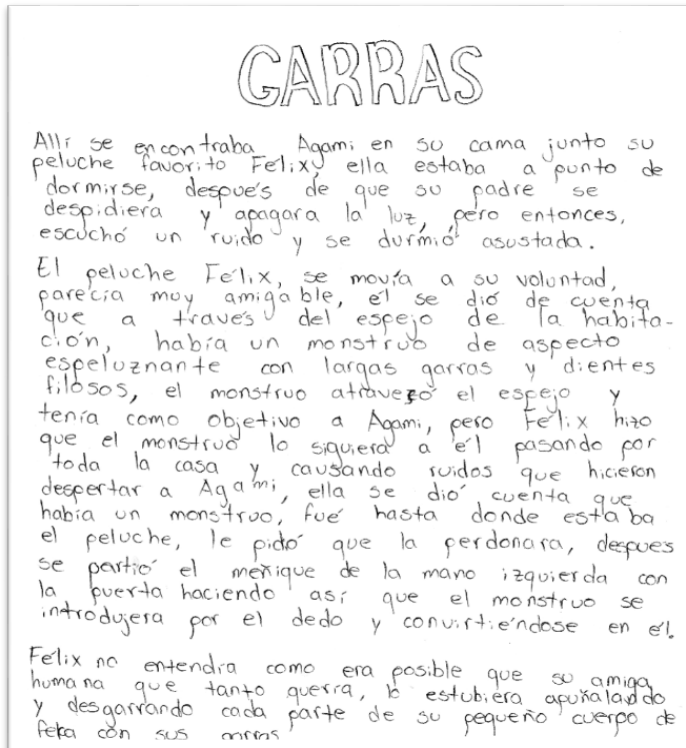 GARRAS
Allí se encontraba Agami en su cama junto su
peluche favorito Félix, ella estaba a punto de
dormirse, después de que su padre se
despidiera y apagara la luz, pero entonces,
escuchó un ruido y se durmió asustada.
El peluche Félix, se movía a su voluntad,
parecía muy amigable, él se dió de cuenta
que a través del espejo de la habita-
ción, había un monstruo de aspecto
espeluznante con largas garras y dientes
filosos, el monstruo atravezó el espejo y
tenía como objetivo a Agami, pero Félix hizo
que el monstruo lo siguiera a él pasando por
toda la casa y causando ruidos que hicieron
despertar a Agami, ella se dió cuenta que
había un monstruo, fué hasta donde estaba
el peluche, le pidó que la perdonara, despues
se partió el meñique de la mano izquierda con
la puerta haciendo así que el monstruo se
introdujera por el dedo y convirtiéndose en él.
Félix no entendía como era posible que su amiga
humana que tanto quería, lo estubiera apuñalando
y desgarrando cada parte de su pequeño cuerpo de
felpa con sus garras